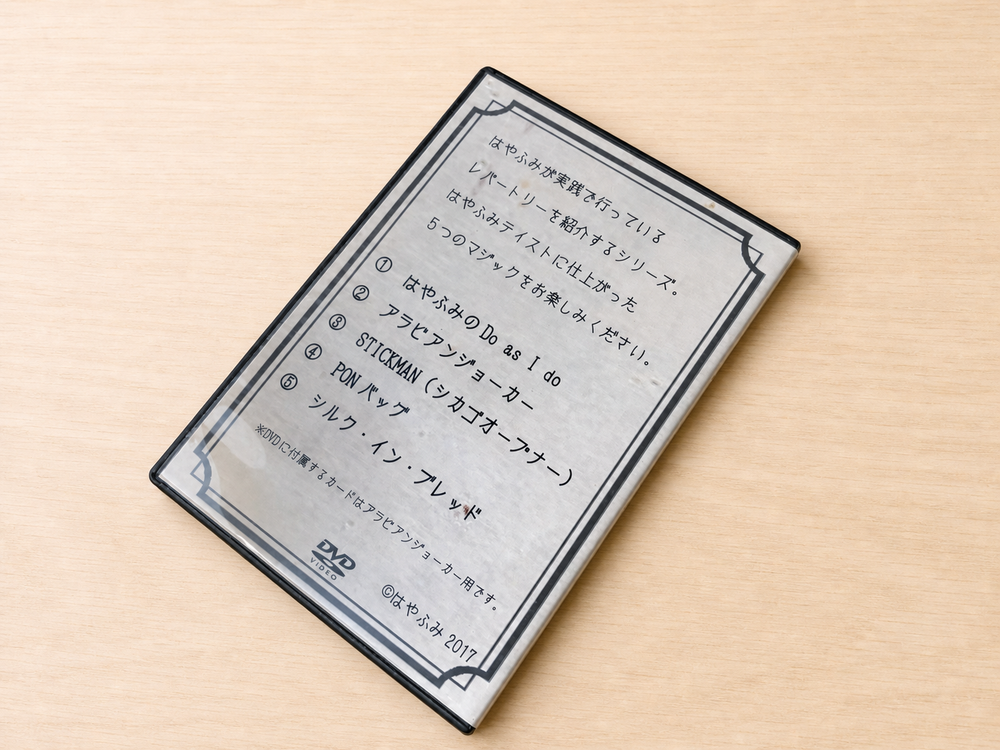 はやふみが実践で行っている
レパートリーを紹介するシリーズ。
はやふみテイストに仕上がった
５つのマジックをお楽しみください。
① はやふみのDo as I do
② アラビアンジョーカー
③ STICKMAN (シカゴオープナー)
④ PONバッグ
⑤ シルク・イン・ブレッド
※DVDに付属するカードはアラビアンジョーカー用です。
DVD
VIDEO
©はやふみ 2017